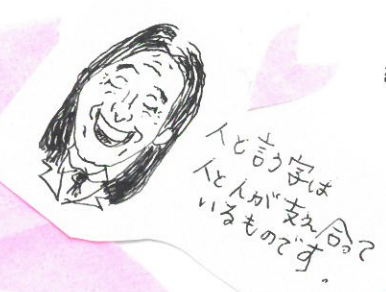 人と言う字は
人と人が支え合って
いるものです。